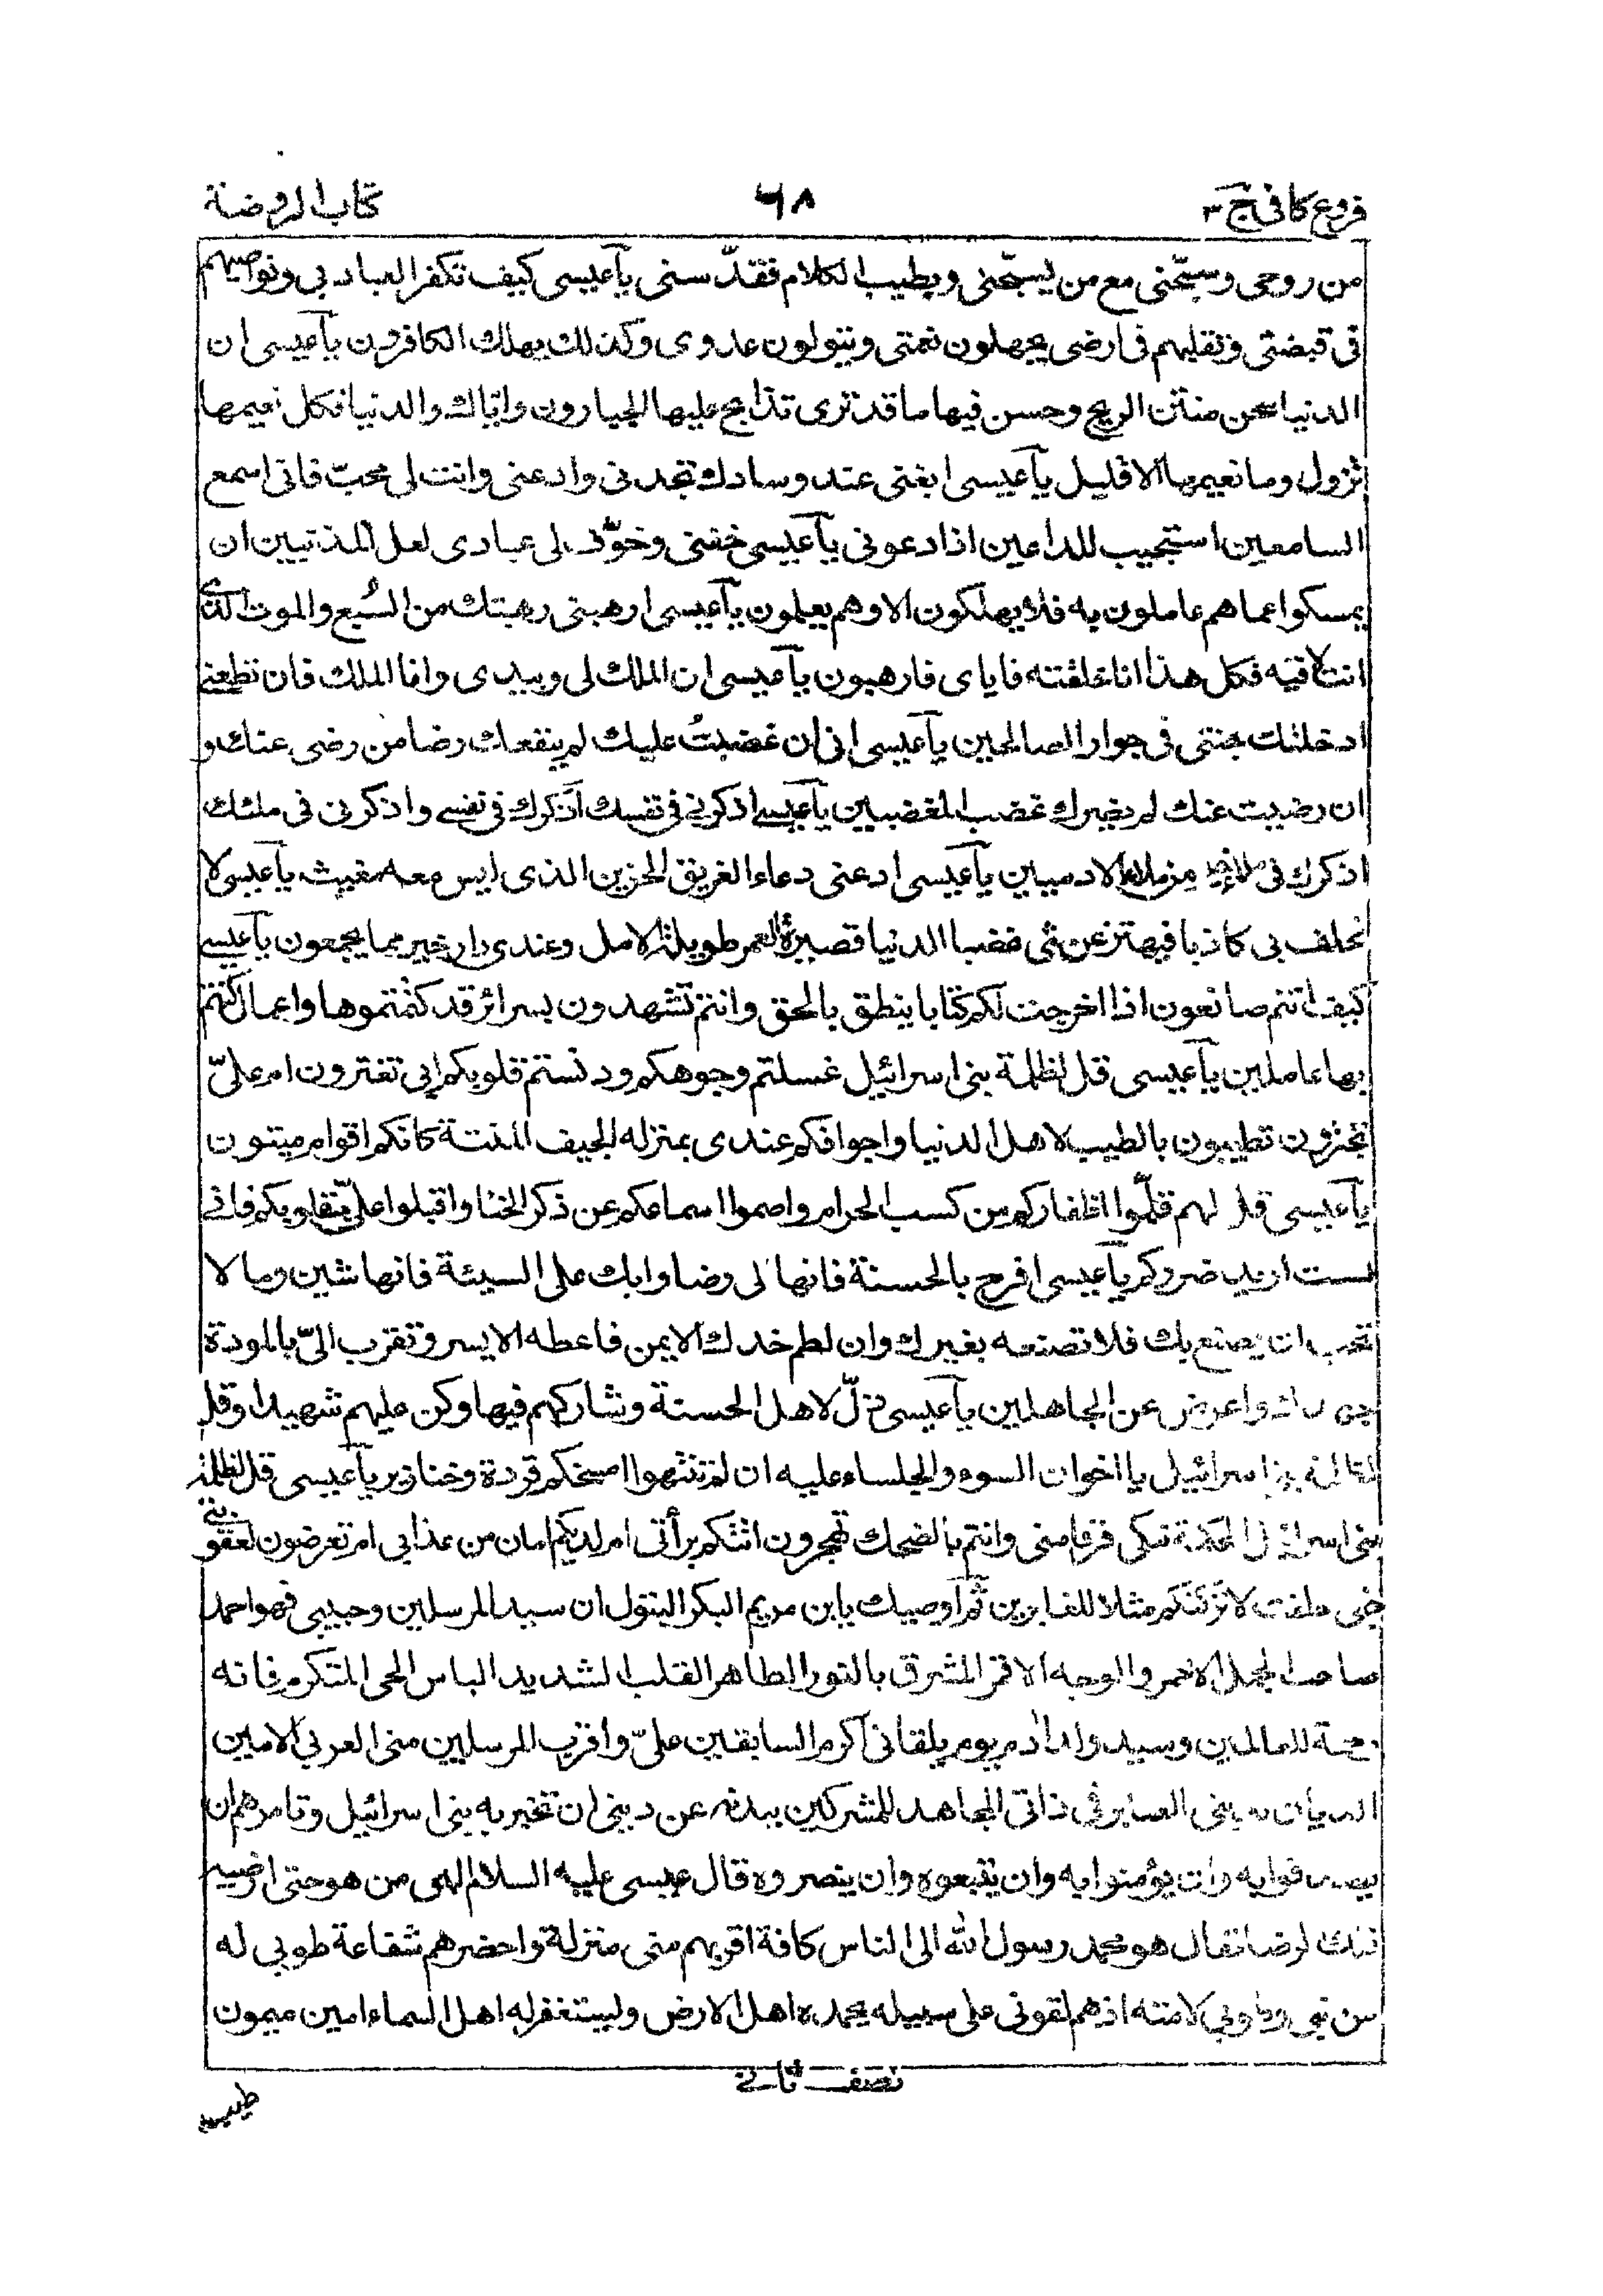 فروع كافى ج ٣
٦٨
كتاب الروضة
من روحى وسبحنى مع من يسبحنى وبطيب الكلام فقدّسنى يا عيسى كيف تكفر العباد بى ونواصيهم
فى قبضتى وتقلبهم فى ارضى يجهلون نعمتى ويتولون عدوى وكذلك يهلك الكافرون يا عيسى ان
الدنيا سجن منتن الريح وحسن فيها ما قد ترى تذابح عليها الجبارون واياك والدنيا فكل نعيمها
يزول وما نعيمها الا قليل يا عيسى ابغنى عند وسادك تجدنى وادعنى وانت لى محبّ فانى اسمع
السامعين استجيب للداعين اذا دعونى يا عيسى خفنى وخوّف بى عبادى لعل المذنبين ان
يمسكوا عما هم عاملون به فلا يهلكون الا وهم يعلمون يا عيسى ارهبنى رهبتك من السُبع والموت الذى
انت لاقيه فكل هذا انا خلقته فاياى فارهبون يا عيسى ان الملك لى وبيدى وانا الملك فان تطعنى
ادخلتك جنتى فى جوار الصالحين يا عيسى انى ان غضبتُ عليك لم ينفعك رضا من رضى عنك و
ان رضيت عنك لم يضرك غضب المغضبين يا عيسى اذكرنى فى نفسك اذكرك فى نفسى واذكرنى فى ملئك
اذكرك فى ملأ خير من ملأ الادميين يا عيسى ادعنى دعاء الغريق الحزين الذى ليس معه مغيث يا عيسى لا
تحلف بى كاذبا فيهتز عرشى غضبا الدنيا قصيرة العمر طويلة الامل وعندى دار خير مما يجمعون يا عيسى
كيف انتم صانعون اذا اخرجت لكم كتابا ينطق بالحق وانتم تشهدون بسرائر قد كتمتموها واعمال كنتم
بها عاملين يا عيسى قل لظلمة بنى اسرائيل غسلتم وجوهكم ودنستم قلوبكم ابى تغترون ام علىّ
تجترؤن تطيبون بالطيب لاهل الدنيا واجوافكم عندى بمنزلة الجيف المنتنة كانكم اقوام ميتون
يا عيسى قل لهم قلّموا اظفاركم من كسب الحرام واصموا اسماعكم عن ذكر الخنا واقبلوا علىّ بقلوبكم فانى
لست اريد ضرركم يا عيسى افرح بالحسنة فانها لى رضا وابك على السيئة فانها شين وما لا
تحب ان يصنع بك فلا تصنعه بغيرك وان لطم خدك الايمن فاعطه الايسر وتقرب الىّ بالمودة
جهدك واعرض عن الجاهلين يا عيسى ذلّ لاهل الحسنة وشاركهم فيها وكن عليهم شهيدا وقل
لظلمة بنى اسرائيل يا اخوان السوء والجلساء عليه ان لم تنتهوا امسخكم قردة وخنازير يا عيسى قل لظلمة
بنى اسرائيل الحكمة تبكى فرقا منى وانتم بالضحك تهجرون اتتكم برأتى ام لديكم امان من عذابى ام تعرضون لعقوبتى
فبى حلفت لاتركنكم مثلا للغابرين ثم اوصيك يابن مريم البكر البتول ان سيد المرسلين وحبيبى فهو احمد
صاحب الجمل الاحمر والوجه الاقمر المشرق بالنور الطاهر القلب الشديد الباس الحى المتكرم فانه
رحمة للعالمين وسيد ولد ادم يوم يلقانى اكرم السابقين علىّ واقرب المرسلين منى العربى الامين
الديان بدينى الصابر فى ذاتى المجاهد للمشركين ببدنه عن دينى ان تخبر به بنى اسرائيل وتامرهم ان
يصدقوا به وان يؤمنوا به وان يتبعوه وان ينصروه قال عيسى عليه السلام الهى من هو حتى ارضيه
فلك الرضا فقال هو محمد رسول الله الى الناس كافة اقربهم منى منزلة واحضرهم شفاعة طوبى له
من نبى وطوبى لامته اذ هم لقونى على سبيله يحمده اهل الارض وليستغفر له اهل السماء امين ميمون
نصف ثانى
طيب